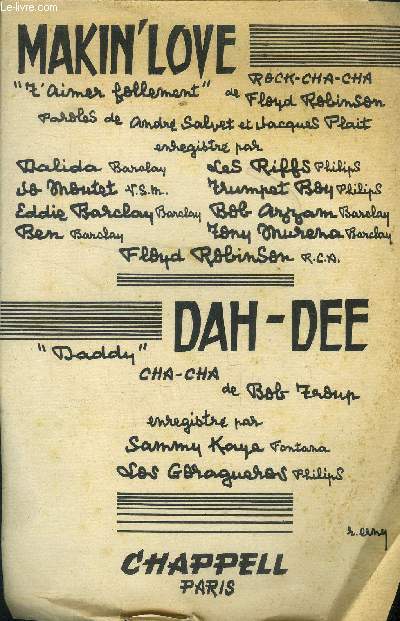 Le-livre.com
MAKIN' LOVE
ROCK-CHA-CHA
"T'Aimer follement" de Floyd Robinson
Paroles de André Salvet et Jacques Plait
enregistré par
Dalida Barclay Les Riffs Philips
Jo Moutet V.S.M. Trumpet Boy Philips
Eddie Barclay Barclay Bob Azzam Barclay
Ben Barclay Tony Murena Barclay
Floyd Robinson R.C.A.
DAH-DEE
"Daddy"
CHA-CHA
de Bob Troup
enregistré par
Sammy Kaye Fontana
Los Goragueros Philips
CHAPPELL
PARIS